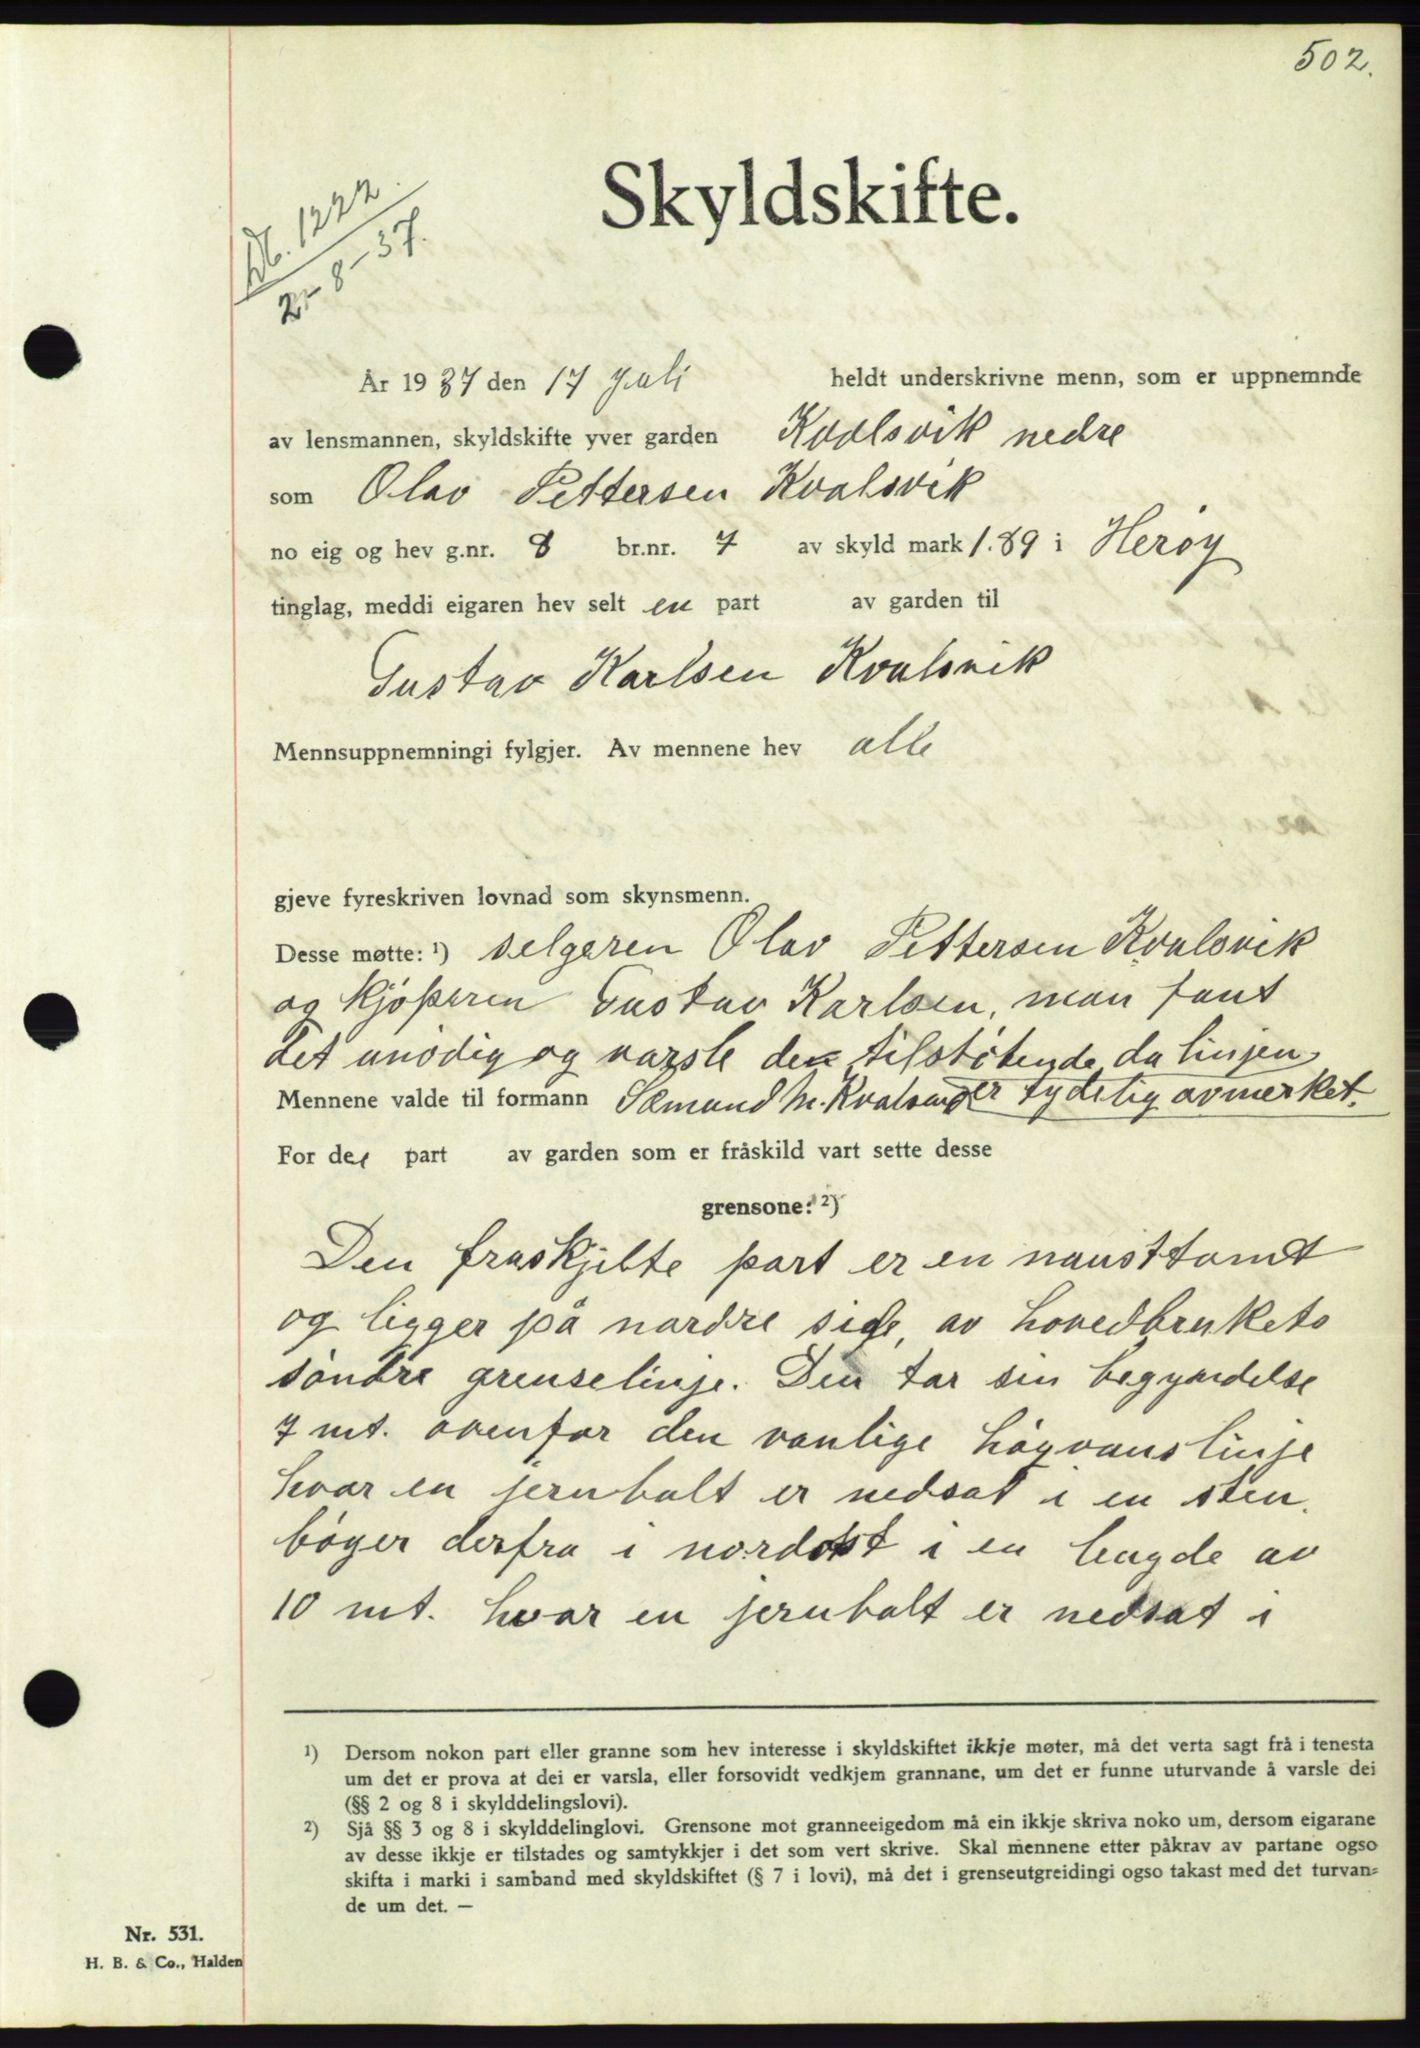 502.
Skyldskifte.
Db. 1222
2-8-37.
År 1937 den 17 Juli heldt underskrivne menn, som er uppnemnde
av lensmannen, skyldskifte yver garden Kvalsvik nedre
som Olav Pettersen Kvalsvik
no eig og hev g.nr. 8 br.nr. 7 av skyld mark 1.89 i Herøy
tinglag, meddi eigaren hev selt en part av garden til
Gustav Karlsen Kvalsvik
Mennsuppnemningi fylgjer. Av mennene hev alle
gjeve fyreskriven lovnad som skynsmenn.
Desse møtte: ¹) selgeren Olav Pettersen Kvalsvik
og kjøperen Gustav Karlsen, man fant
det unødig og varsle den tilstøtende da linjen
Mennene valde til formann Sæmund M. Kvalsund er tydelig avmerket.
For den part av garden som er fråskild vart sette desse
grensone: ²)
Den fraskjelte part er en nausttomt
og ligger på nordre side, av hovedbrukets
søndre grenselinje. Den tar sin begyndelse
7 mt. ovenfor den vanlige høgvanslinje
hvor en jernbolt er nedsat i en sten.
bøyer derfra i nordøst i en lengde av
10 mt. hvor en jernbolt er nedsat i
¹) Dersom nokon part eller granne som hev interesse i skyldskiftet ikkje møter, må det verta sagt frå i tenesta
um det er prova at dei er varsla, eller forsovidt vedkjem grannane, um det er funne uturvande å varsle dei
(§§ 2 og 8 i skylddelingslovi).
²) Sjå §§ 3 og 8 i skylddelinglovi. Grensone mot granneeigedom må ein ikkje skriva noko um, dersom eigarane
av desse ikkje er tilstades og samtykkjer i det som vert skrive. Skal mennene etter påkrav av partane ogso
skifta i marki i samband med skyldskiftet (§ 7 i lovi), må det i grenseutgreidingi ogso takast med det turvan=
de um det. —
Nr. 531.
H. B. & Co., Halden